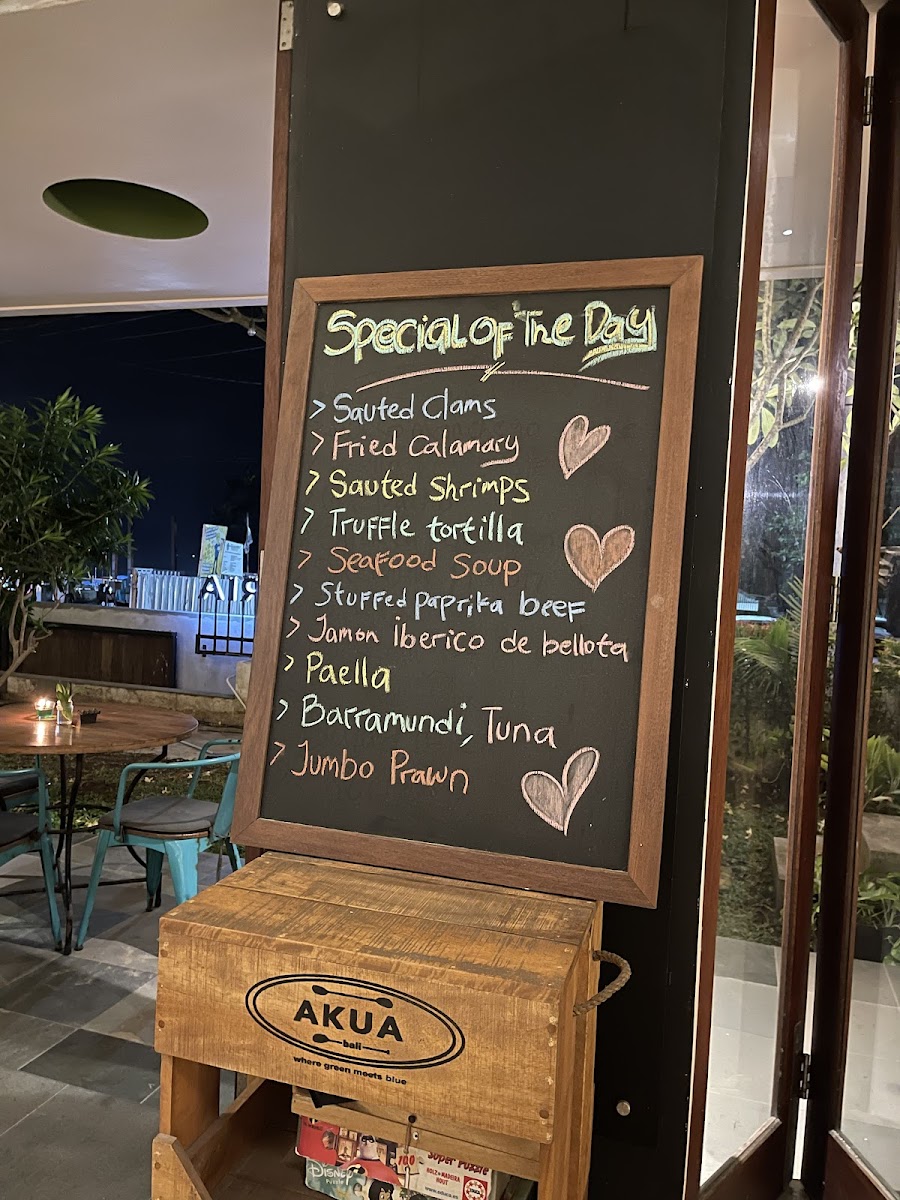 Special of The Day
> Sauted Clams
> Fried Calamary
> Sauted Shrimps
> Truffle tortilla
> Seafood Soup
> Stuffed paprika beef
> Jamon İberico de bellota
> Paella
> Barramundi, Tuna
> Jumbo Prawn
AKUA
bali
where green meets blue
DISNEY
Puzzle
100
Super Puzzle
www.educa.es